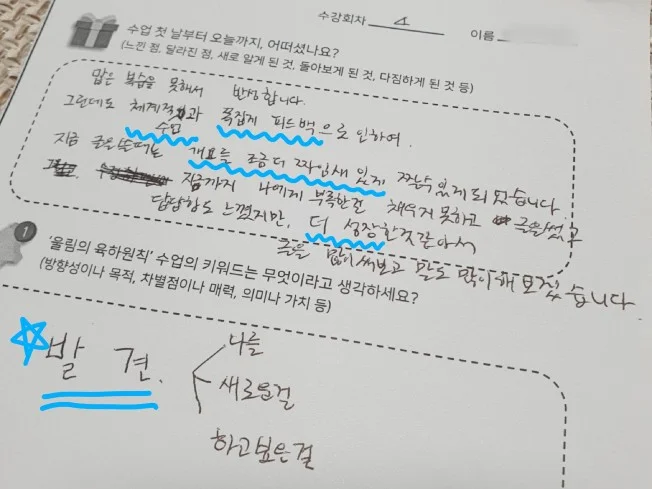 수강회차 4 이름
수업 첫 날부터 오늘까지, 어떠셨나요?
(느낀 점, 달라진 점, 새로 알게 된 것, 돌아보게 된 것, 다짐하게 된 것 등)
많은 복습을 못해서 반성합니다.
그런데도 체계적 수업과 족집게 피드백으로 인하여.
지금 글을 쓸때는 개요를 조금 더 짜임새 있게 짤수 있게 되었습니다
지금까지 나에게 부족한걸 채우지 못하고 글을 썼고
답답함도 느꼈지만, 더 성장한것 같아서
글을 많이 써보고 말도 많이 해 보겠습니다.
1
'울림의 육하원칙' 수업의 키워드는 무엇이라고 생각하세요?
(방향성이나 목적, 차별점이나 매력, 의미나 가치 등)
발견.
나를
새로운걸
하고싶은걸